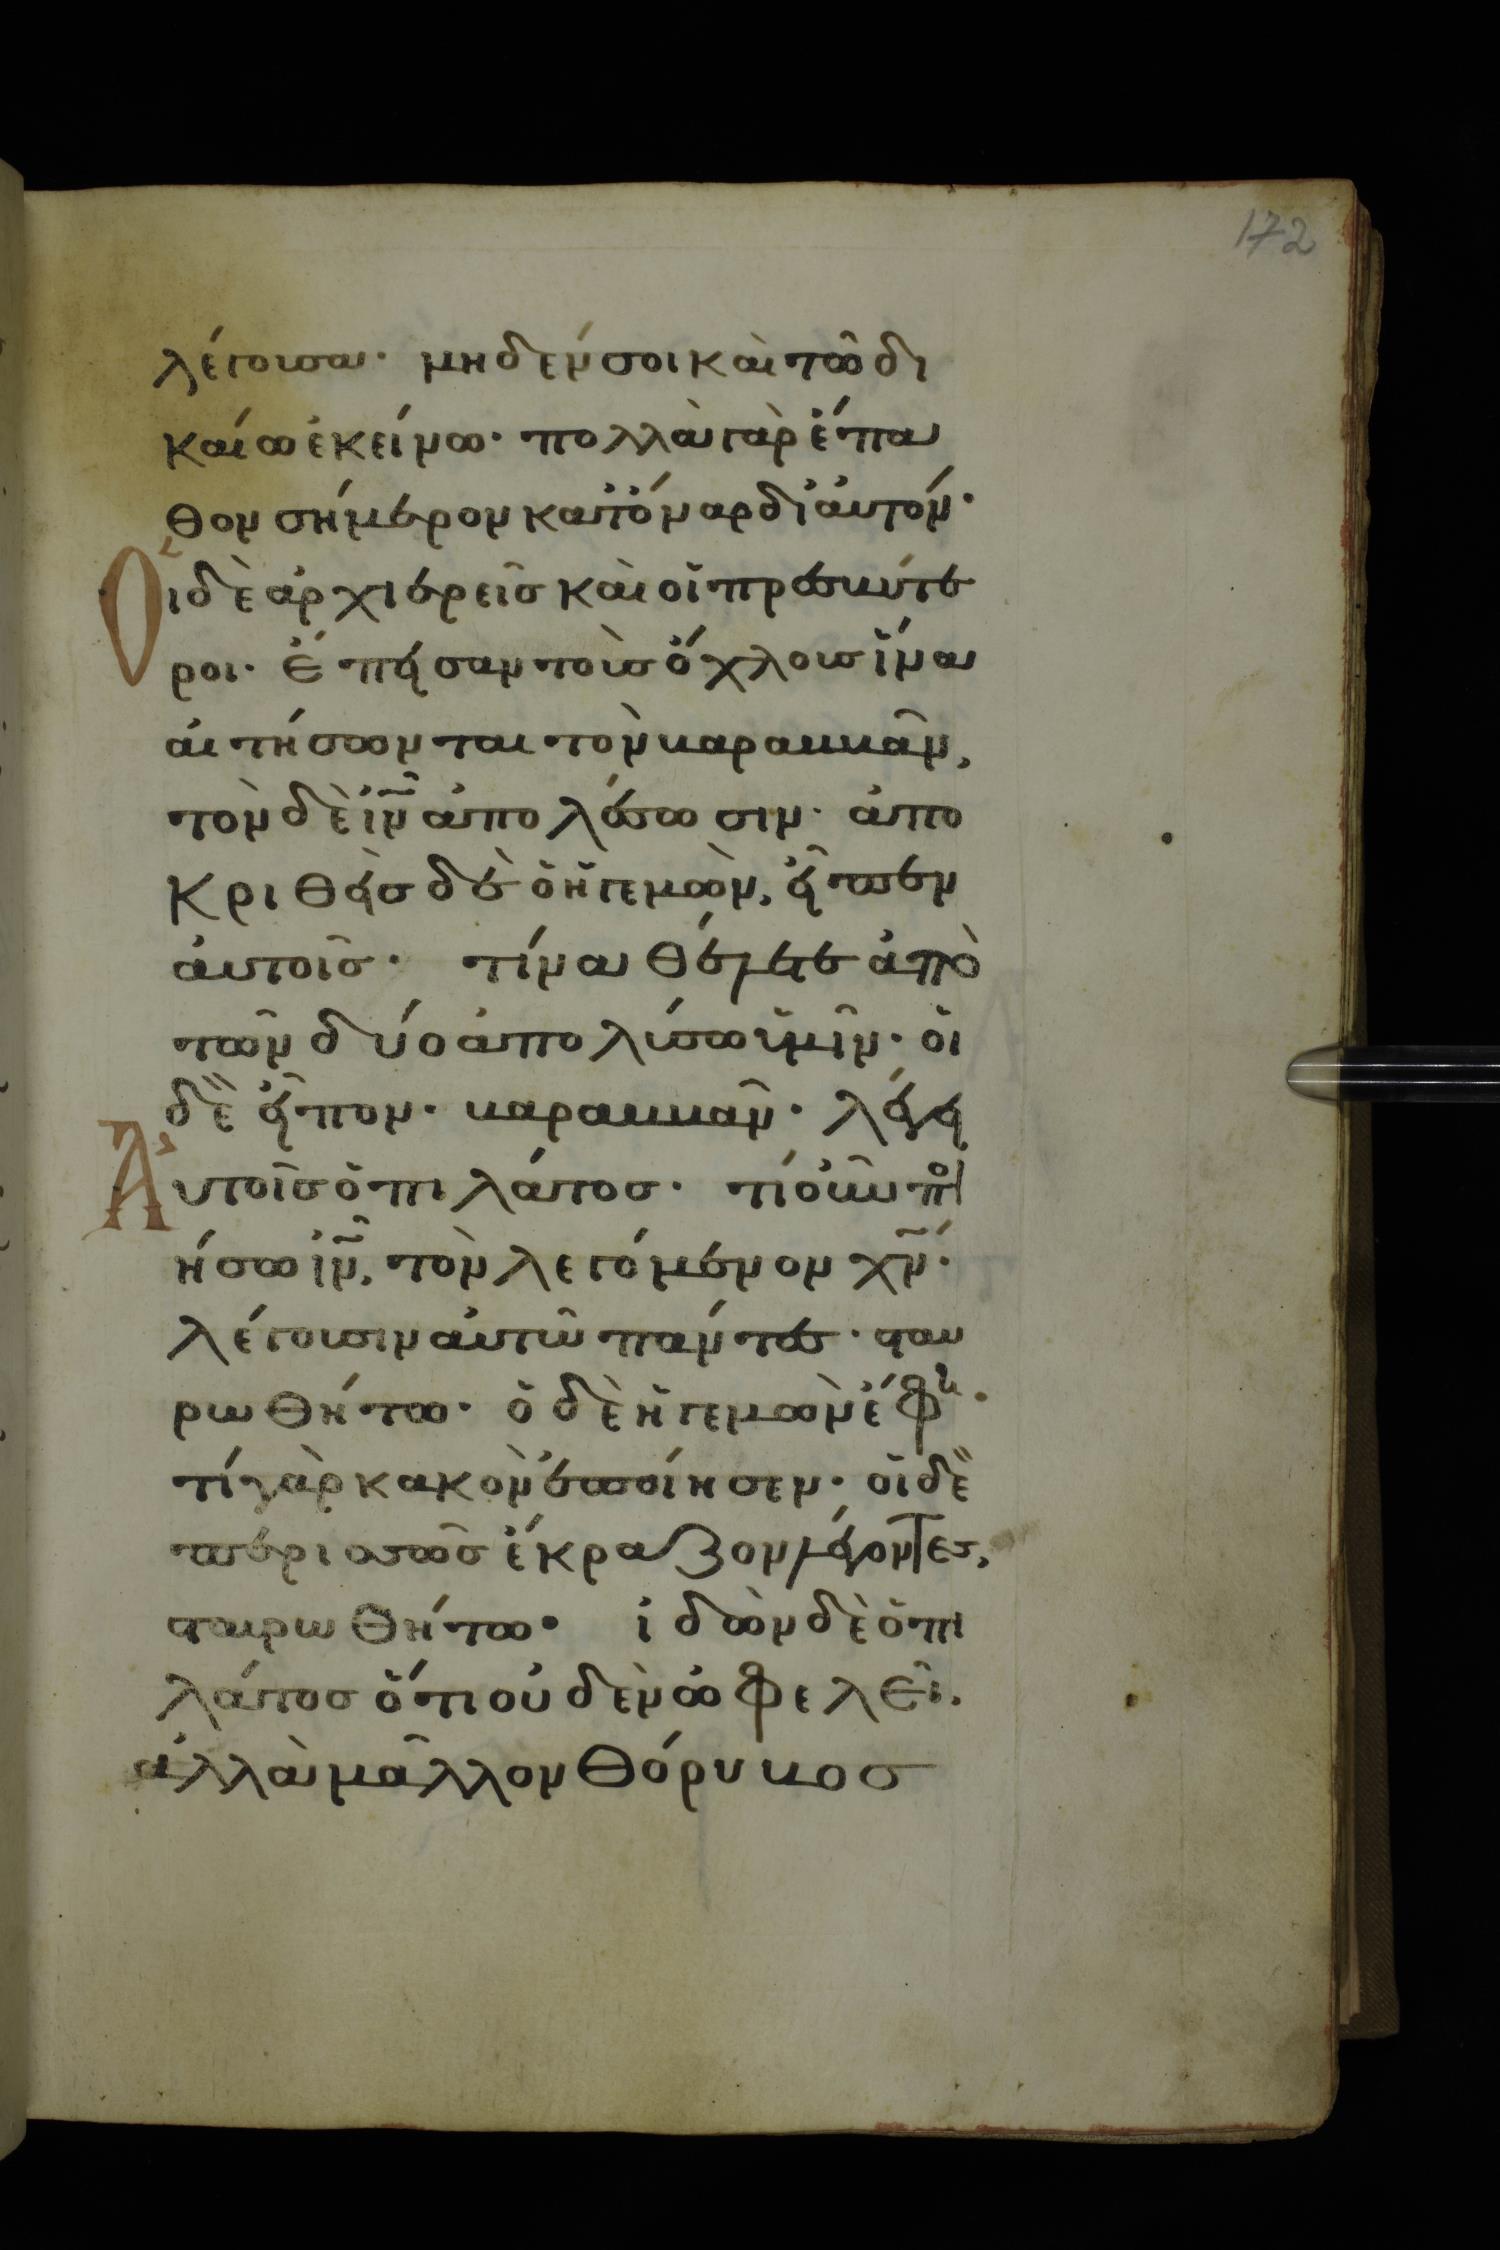 172
λέγουσα· μηδέν σοι καὶ τῶ δι
καίω ἐκείνω· πολλὰ γὰρ ἔπα
θον σήμερον κατ' ὄναρ δι' αὐτόν·
Οἱ δὲ ἀρχιερεῖς καὶ οἱ πρεσβύτε
ροι· ἔπεισαν τοὺς ὄχλους ἵνα
αἰτήσωνται τὸν βαραββᾶν,
τὸν δὲ ἰ̅ν̅ ἀπολέσωσιν· ἀπο
κριθεὶς δὲ ὁ ἡγεμὼν, εἶπεν
αὐτοῖς· τίνα θέλετε ἀπὸ
τῶν δύο ἀπολύσω ὑμῖν· οἱ
δὲ εἶπον· βαραββᾶν· λέγει
Αὐτοῖς ὁ πιλάτος· τί οὖν ποι
ήσω ἰ̅ν̅, τὸν λεγόμενον χ̅ν̅·
λέγουσιν αὐτῶ πάντες· σταυ
ρωθήτω· ὁ δὲ ἡγεμὼν ἔφη·
τί γὰρ κακὸν ἐποίησεν· οἱ δὲ
περισσῶς ἔκραζον λέγοντες,
σταυρωθήτω· ἰδὼν δὲ ὁ πι
λάτος ὅτι οὐδὲν ὠφελεῖ.
ἀλλὰ μᾶλλον θόρυβος